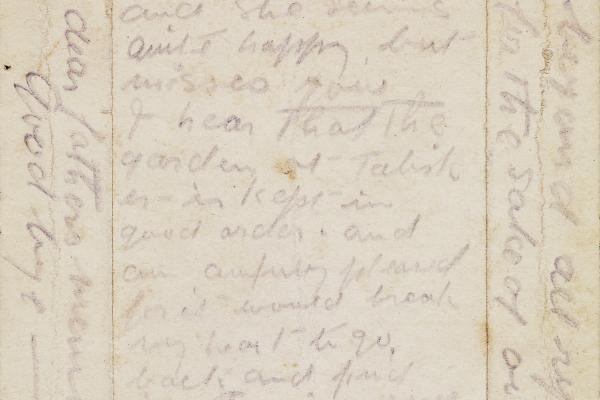 and she seems
quite happy, but
misses you
I hear that the
garden at Talisk
er is kept in
good order. and
am awfully pleased
for it would break
my heart to go,
back and find
dear fathers mem
good bye
for the sake of
beyond all